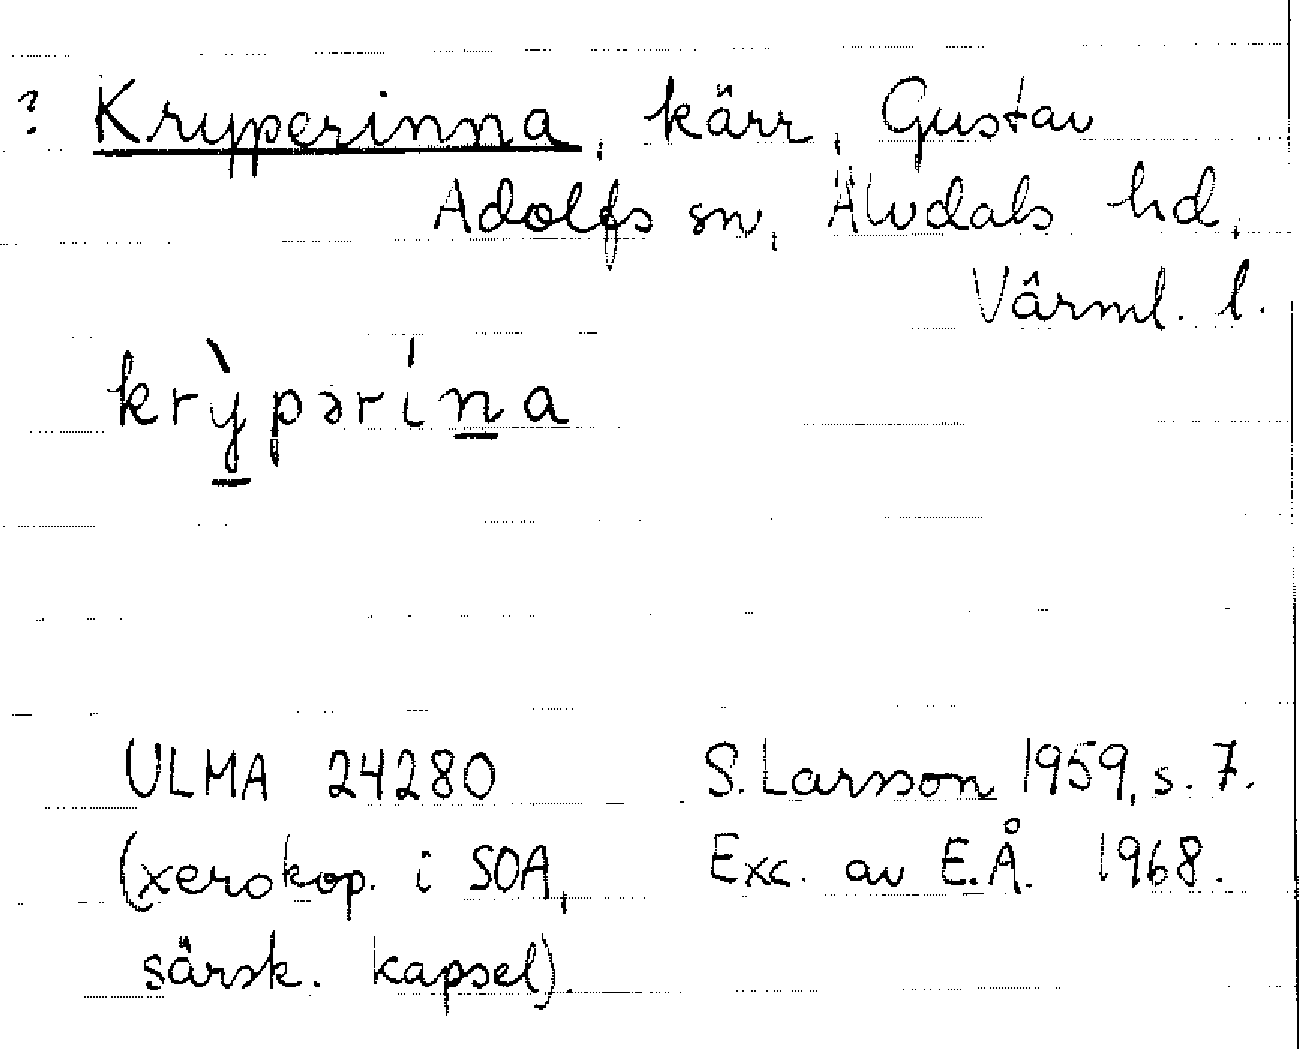 ? Kryperinna, kärr, Gustav
Adolfs sn, Älvdals hd,
Värml. l.
krỳpərína
ULMA 24280 S. Larsson 1959, s. 7.
(xerokop. i SOA, Exc. av E.Å. 1968.
särsk. kapsel).